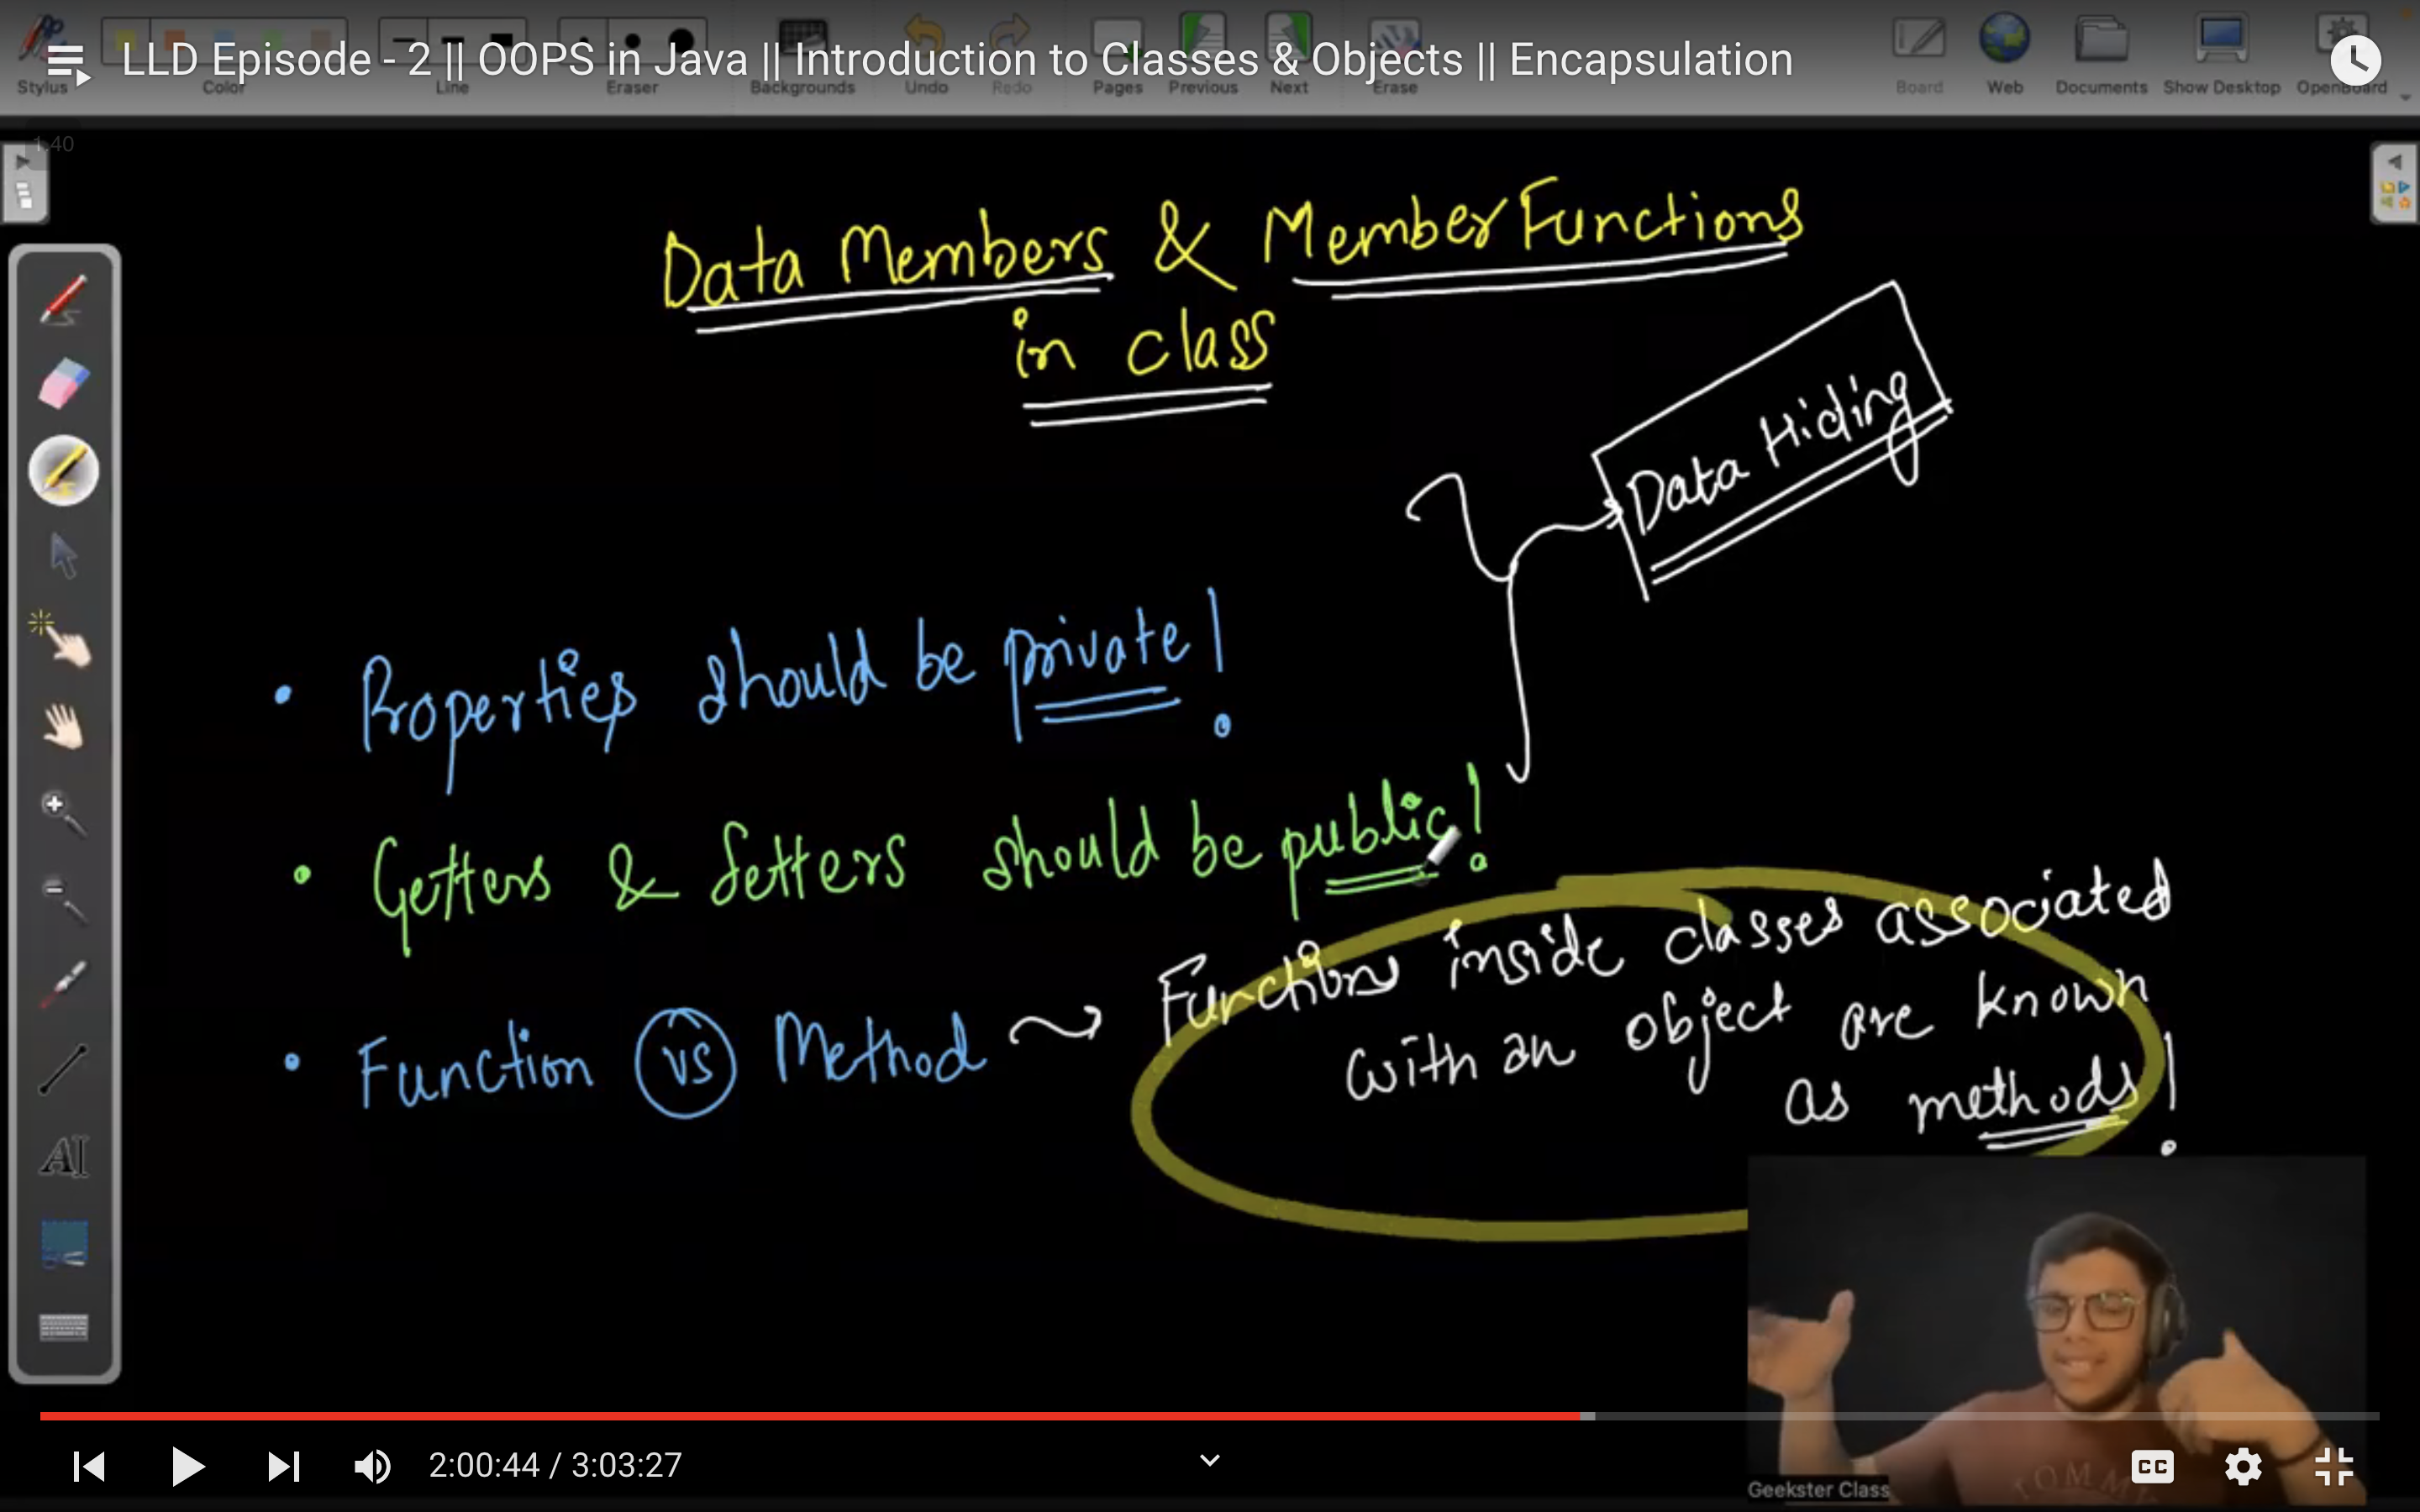 LLD Episode - 2 || OOPS in Java || Introduction to Classes & Objects || Encapsulation
Stylus Color Line Eraser Backgrounds Undo Redo Pages Previous Next Erase Board Web Documents Show Desktop OpenBoard
1:40
Data Members & Member Functions
in class
Data Hiding
• Properties should be private!
• Getters & Setters should be public!
• Function vs Method
Functions inside classes associated
with an object are known
as methods!
AI
TOMMY
Geekster Class
2:00:44 / 3:03:27
CC